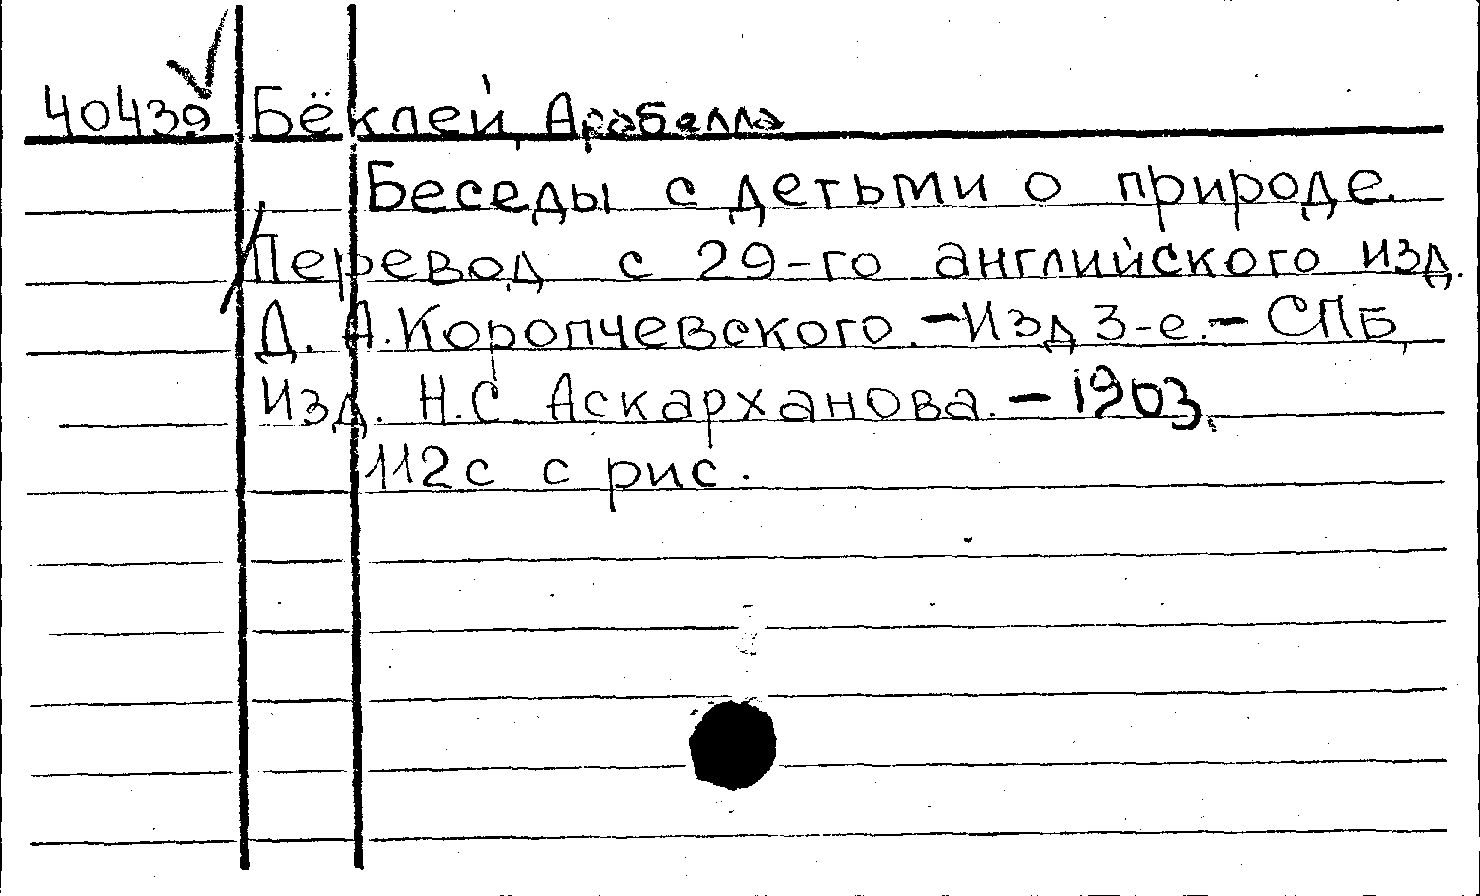 40439 Бёклей, Арабелла
Беседы с детьми о природе.
Перевод с 29-го английского изд.
Д. А. Коропчевского. - Изд 3-е. - СПБ,
Изд. Н.С. Аскарханова. - 1903.
112с с рис.